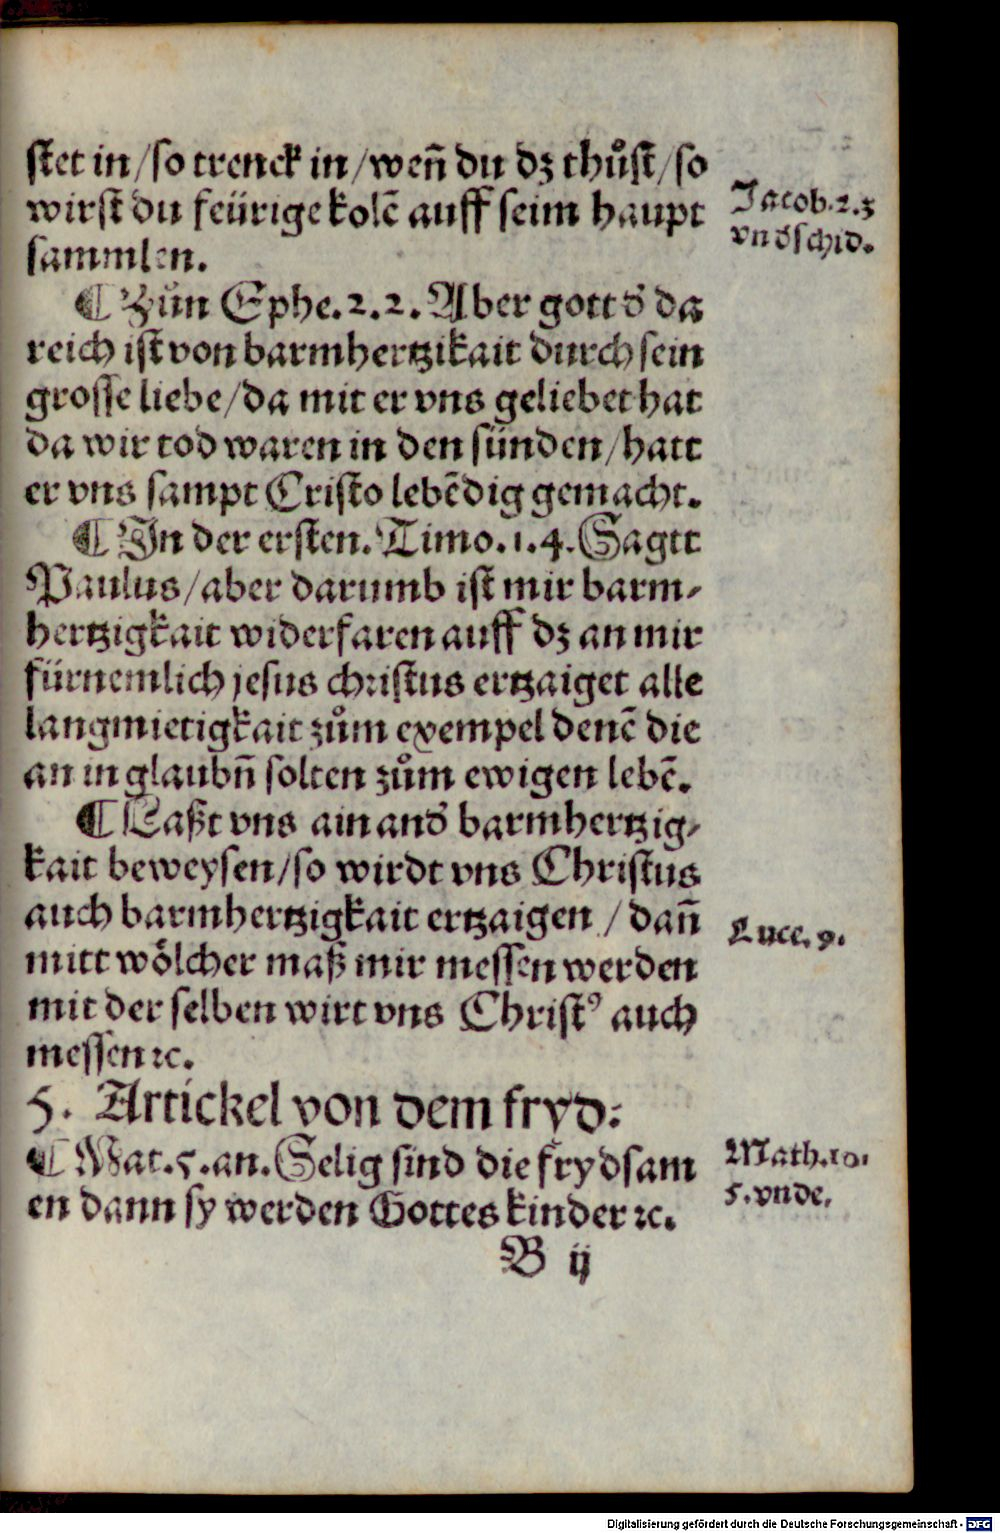 stet in/so trenck in/weñ du dz thůst/so
wirst du feürige kolē auff seim haupt
sammlen.
Jacob.2.3
vndschid.
¶ Zůn Ephe.2.2. Aber gott d' da
reich ist von barmhertzikait durch sein
grosse liebe/da mit er vns geliebet hat
da wir tod waren in den sünden/hatt
er vns sampt Cristo lebēdig gemacht.
¶ In der ersten. Timo.1.4. Sagtt
Paulus/aber darumb ist mir barm-
hertzigkait widerfaren auff dz an mir
fürnemlich jesus christus ertzaiget alle
langmietigkait zům exempel denē die
an in glaubñ solten zům ewigen lebē.
¶ Laßt vns ain and' barmhertzig-
kait beweysen/so wirdt vns Christus
auch barmhertzigkait ertzaigen / dañ
mitt wölcher maß mir messen werden
mit der selben wirt vns Christ⁹ auch
messen ꝛc.
Luce.9.
5. Artickel von dem fryd:
¶ Mat.5.an. Selig sind die frydsam
en dann sy werden Gottes kinder ꝛc.
Math.10.
5.vnde.
B ij
Digitalisierung gefördert durch die Deutsche Forschungsgemeinschaft - DFG